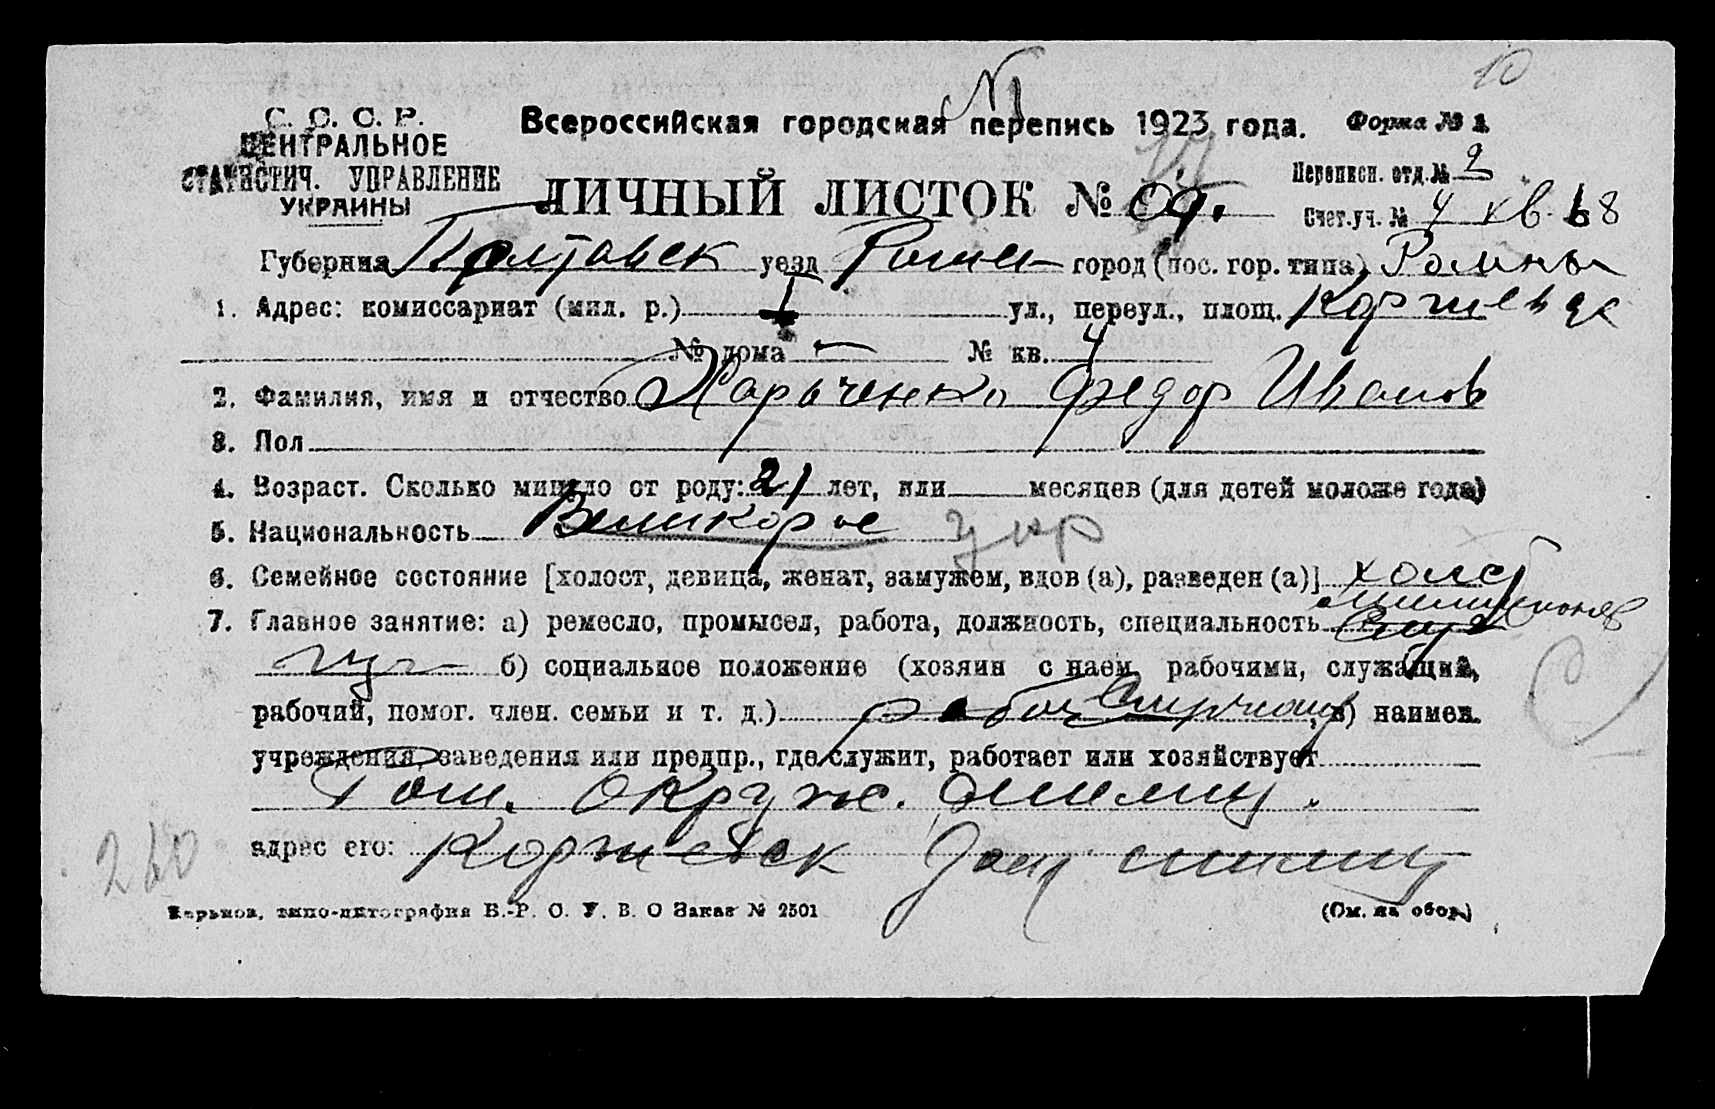 10
№
С. С. С. Р.
ЦЕНТРАЛЬНОЕ
СТАТИСТИЧ. УПРАВЛЕНИЕ
УКРАИНЫ
Всероссийская городская перепись 1923 года.
Форма № 1
ЛИЧНЫЙ ЛИСТОК №
Переписн. отд. № 2
Счет. уч. № 4 кв. 68
Губерния Полтавск уезд Ромен город (пос. гор. типа) Ромны
1. Адрес: комиссариат (мил. р.) 1 ул., переул., площ. Коржевск
№ дома — № кв. 4
2. Фамилия, имя и отчество Харченко Федор Иванов
3. Пол
4. Возраст. Сколько минуло от роду: 21 лет, или месяцев (для детей моложе года)
5. Национальность Великорос укр
6. Семейное состояние [холост, девица, женат, замужем, вдов (а), разведен (а)] холост
7. Главное занятие: а) ремесло, промысел, работа, должность, специальность милиционер
б) социальное положение (хозяин с наем. рабочими, служащий,
рабочий, помог. член. семьи и т. д.) рабоч Служащ, в) наимен.
учреждения, заведения или предпр., где служит, работает или хозяйствует
Ром. Окруж. милиц.
адрес его: Коржевск милиц
260
Харьков, типо-литография В.-Р. С. У. В. О Заказ № 2501
(См. на обор.)